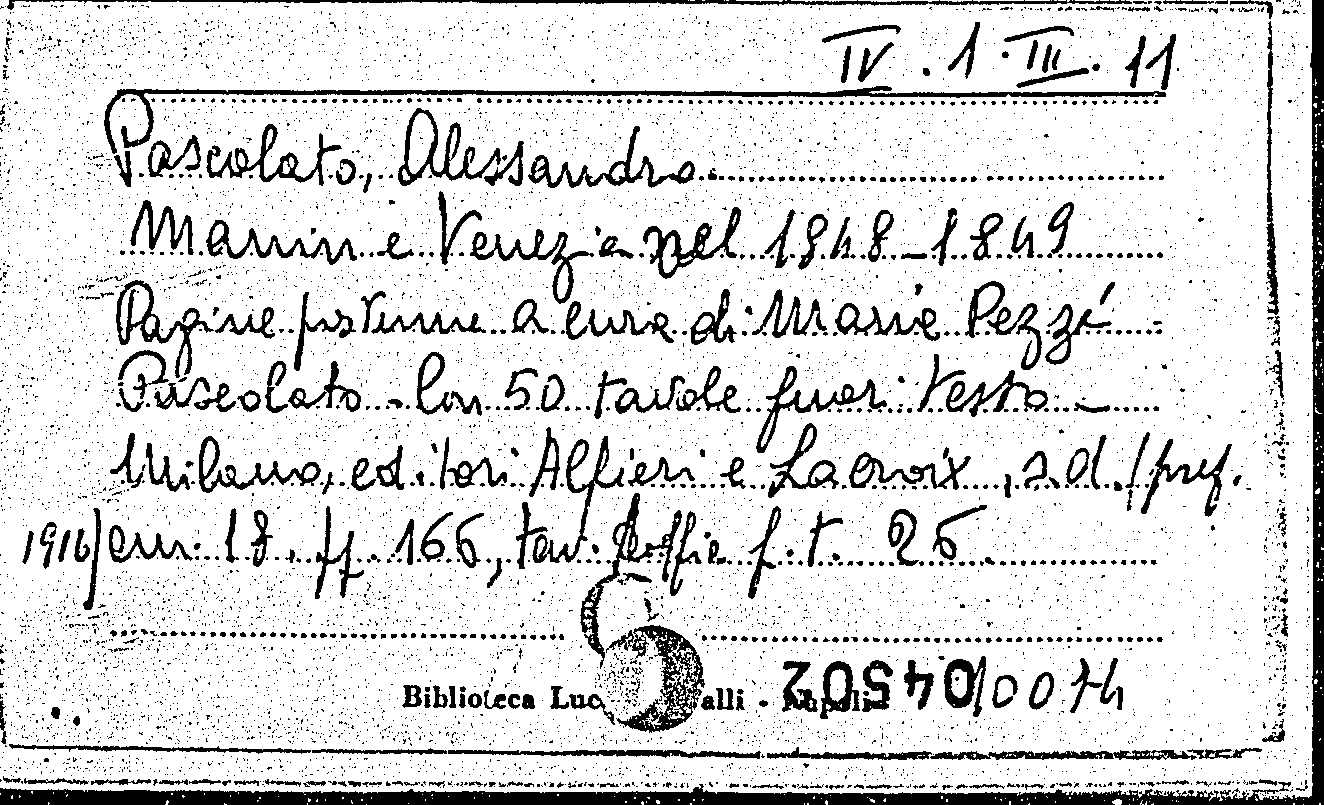 IV. 1. III. 11
Pascolato, Alessandro
Manin e Venezia nel 1848-1849
Pagine postume a cura di Maria Pezzé
Pascolato - Con 50 tavole fuori testo -
Milano, editori Alfieri e Lacroix, s.d. /pref.
1916/ cm. 18. pp. 166, tav. doppie f.t. 25.
Biblioteca Luc alli - Napoli
045020074